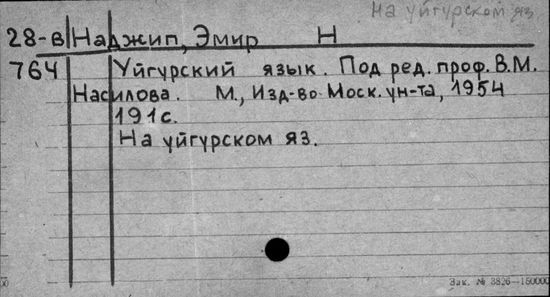 На уйгурском яз
28-в Наджип, Эмир Н
764 Уйгурский язык. Под ред. проф. В.М.
Насилова. М., Изд-во Моск. ун-та, 1954
191 с.
На уйгурском яз.
Зак. № 3826—150000